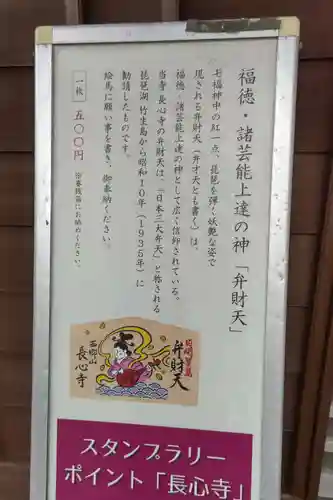 福徳・諸芸能上達の神「弁財天」
七福神中の紅一点、琵琶を弾く妖艶な姿で
現される弁財天(弁才天とも書く)は、
福徳・諸芸能上達の神として広く信仰されている。
当寺 長心寺の弁財天は、「日本三大弁天」と称される
琵琶湖 竹生島から昭和10年(1935年)に
勧請したものです。
絵馬に願い事を書き、御奉納ください。
一枚 五〇〇円
弁財天
西郷山
長心寺
スタンプラリー
ポイント「長心寺」